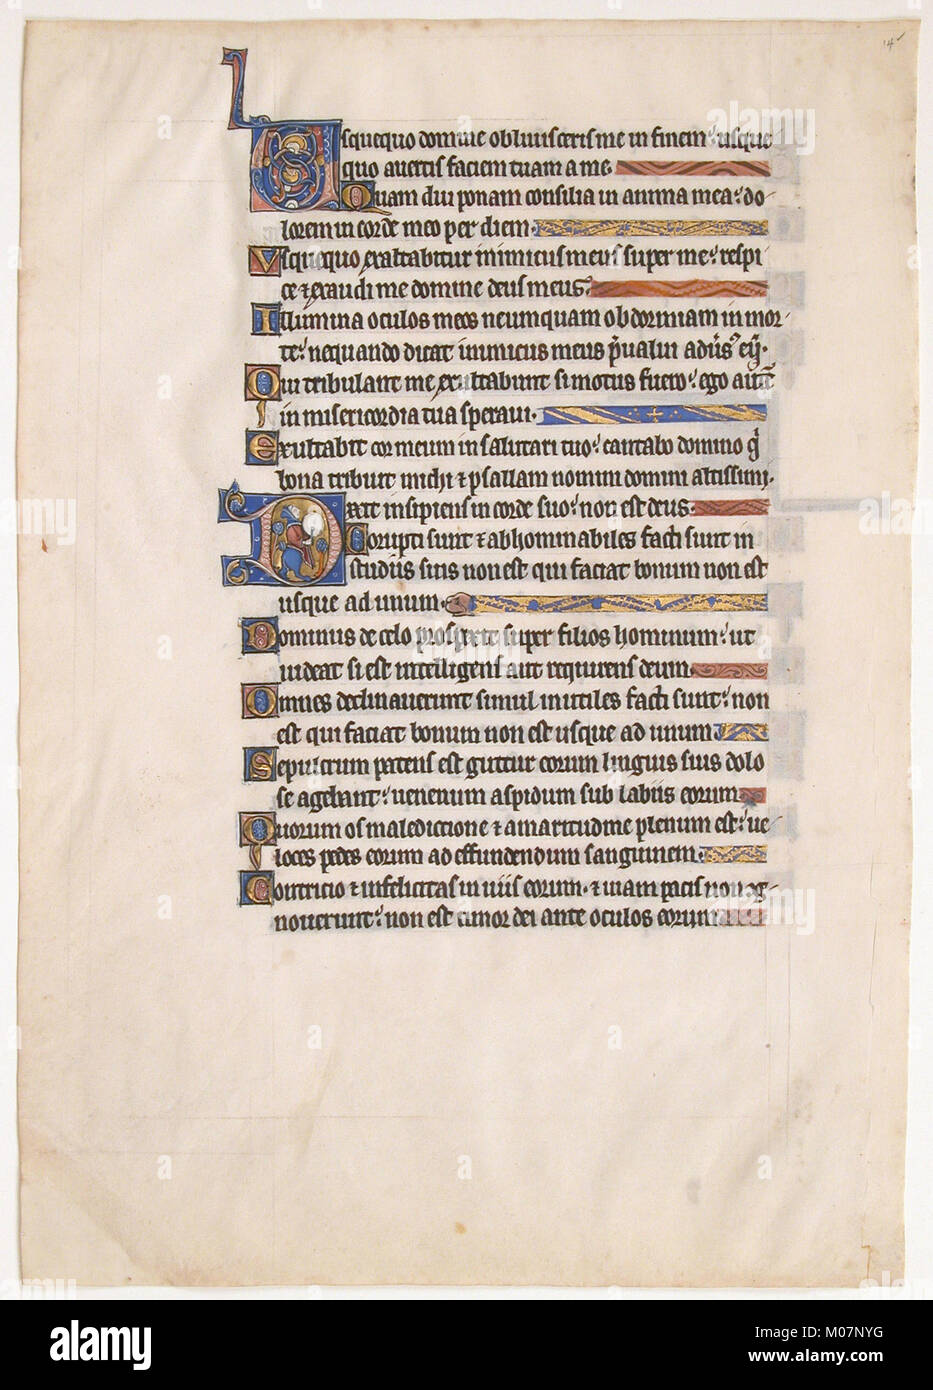 14
Usquequo domine obliuisceris me in finem: usque
quo auertis faciem tuam a me.
Quam diu ponam consilia in anima mea: do-
lorem in corde meo per diem.
Vsquequo exaltabitur inimicus meus super me: respi
ce & exaudi me domine deus meus.
Illumina oculos meos ne umquam obdormiam in mor-
te: nequando dicat inimicus meus p̃ualui adũs eũ.
Qui tribulant me exultabunt si motus fuero: ego autẽ
in misericordia tua speraui.
Exultabit cor meum in salutari tuo: cantabo domino q̃
bona tribuit michi & psallam nomini domini altissimi.
Dixit insipiens in corde suo: non est deus.
Corrupti sunt & abhominabiles facti sunt in
studiis suis non est qui faciat bonum non est
usque ad unum.
Dominus de celo prospexit super filios hominum: ut
uideat si est intelligens aut requirens deum.
Omnes declinauerunt simul inutiles facti sunt: non
est qui faciat bonum non est usque ad unum.
Sepulcrum patens est guttur eorum linguis suis dolo
se agebant: uenenum aspidum sub labiis eorum.
Quorum os maledictione & amaritudine plenum est: ue
loces pedes eorum ad effundendum sanguinem.
Contricio & infelicitas in uiis eorum. & uiam pacis non og-
nouerunt: non est timor dei ante oculos eorum
alamy
Image ID: M07NYG
www.alamy.com